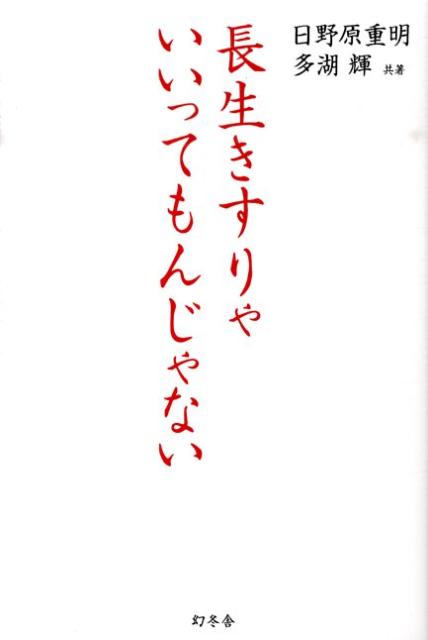 日野原重明
多湖 輝 共著
長生きすりゃ
いいってもんじゃない
幻冬舎